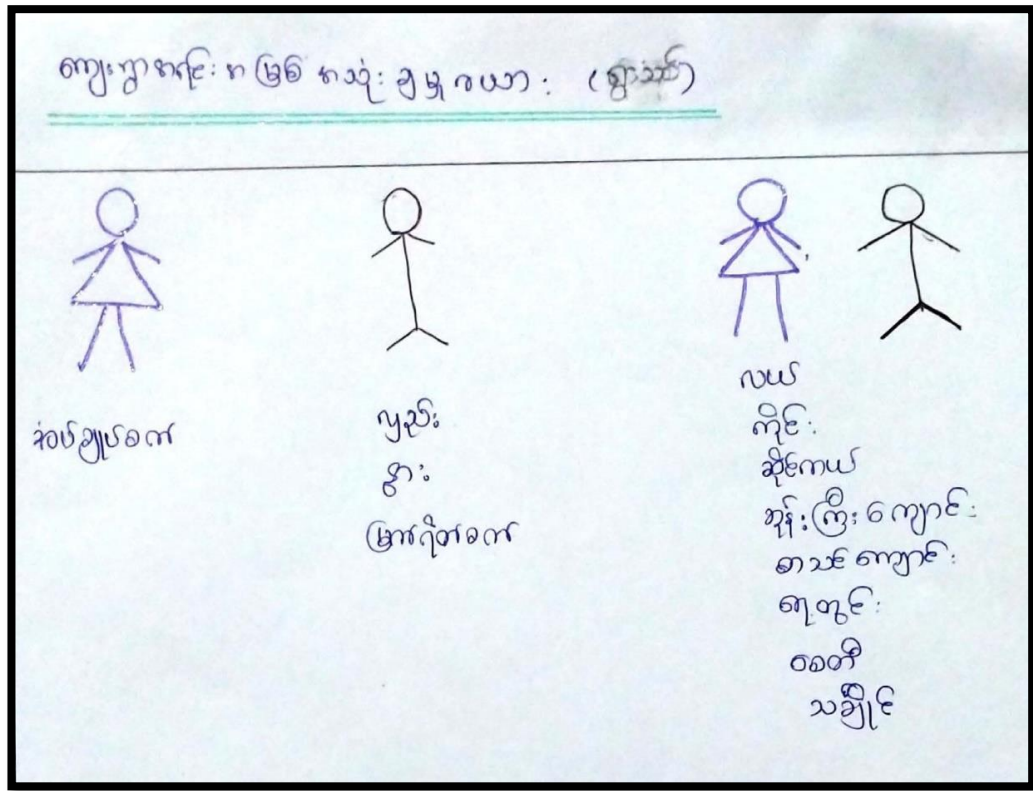 ကျေးရွာအရင်းအမြစ် အသုံးချမှုဇယား (ရွာသစ်)
အပ်ချုပ်စက်
လှည်း
နွား
မြက်ရိတ်စက်
လယ်
ကိုင်း
ဆိုင်ကယ်
ဘုန်းကြီးကျောင်း
စာသင်ကျောင်း
ရေတွင်း
စေတီ
သင်္ချိုင်း